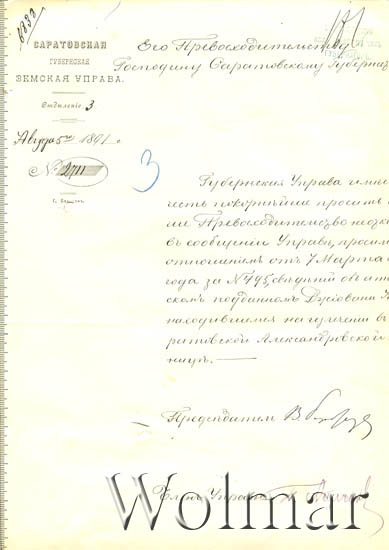 САРАТОВСКАЯ
ГУБЕРНСКАЯ
ЗЕМСКАЯ УПРАВА.
Отдѣленіе 3
Августа 5 дня 1891 г.
№ 2711
г. Саратовъ
3
Его Превосходительству
Господину Саратовскому Губерна
Губернская Управа имѣе
честь покорнѣйше просить
ше Превосходительство
въ сообщеніи Управѣ, просим
отношеніемъ отъ 7 Марта
года за № 795, свѣдѣній объ
скомъ подданномъ
находившемся на излеченіи въ
ратовской Александровской
ницѣ.
Предсѣдатель В.
Членъ Управы
Wolmar